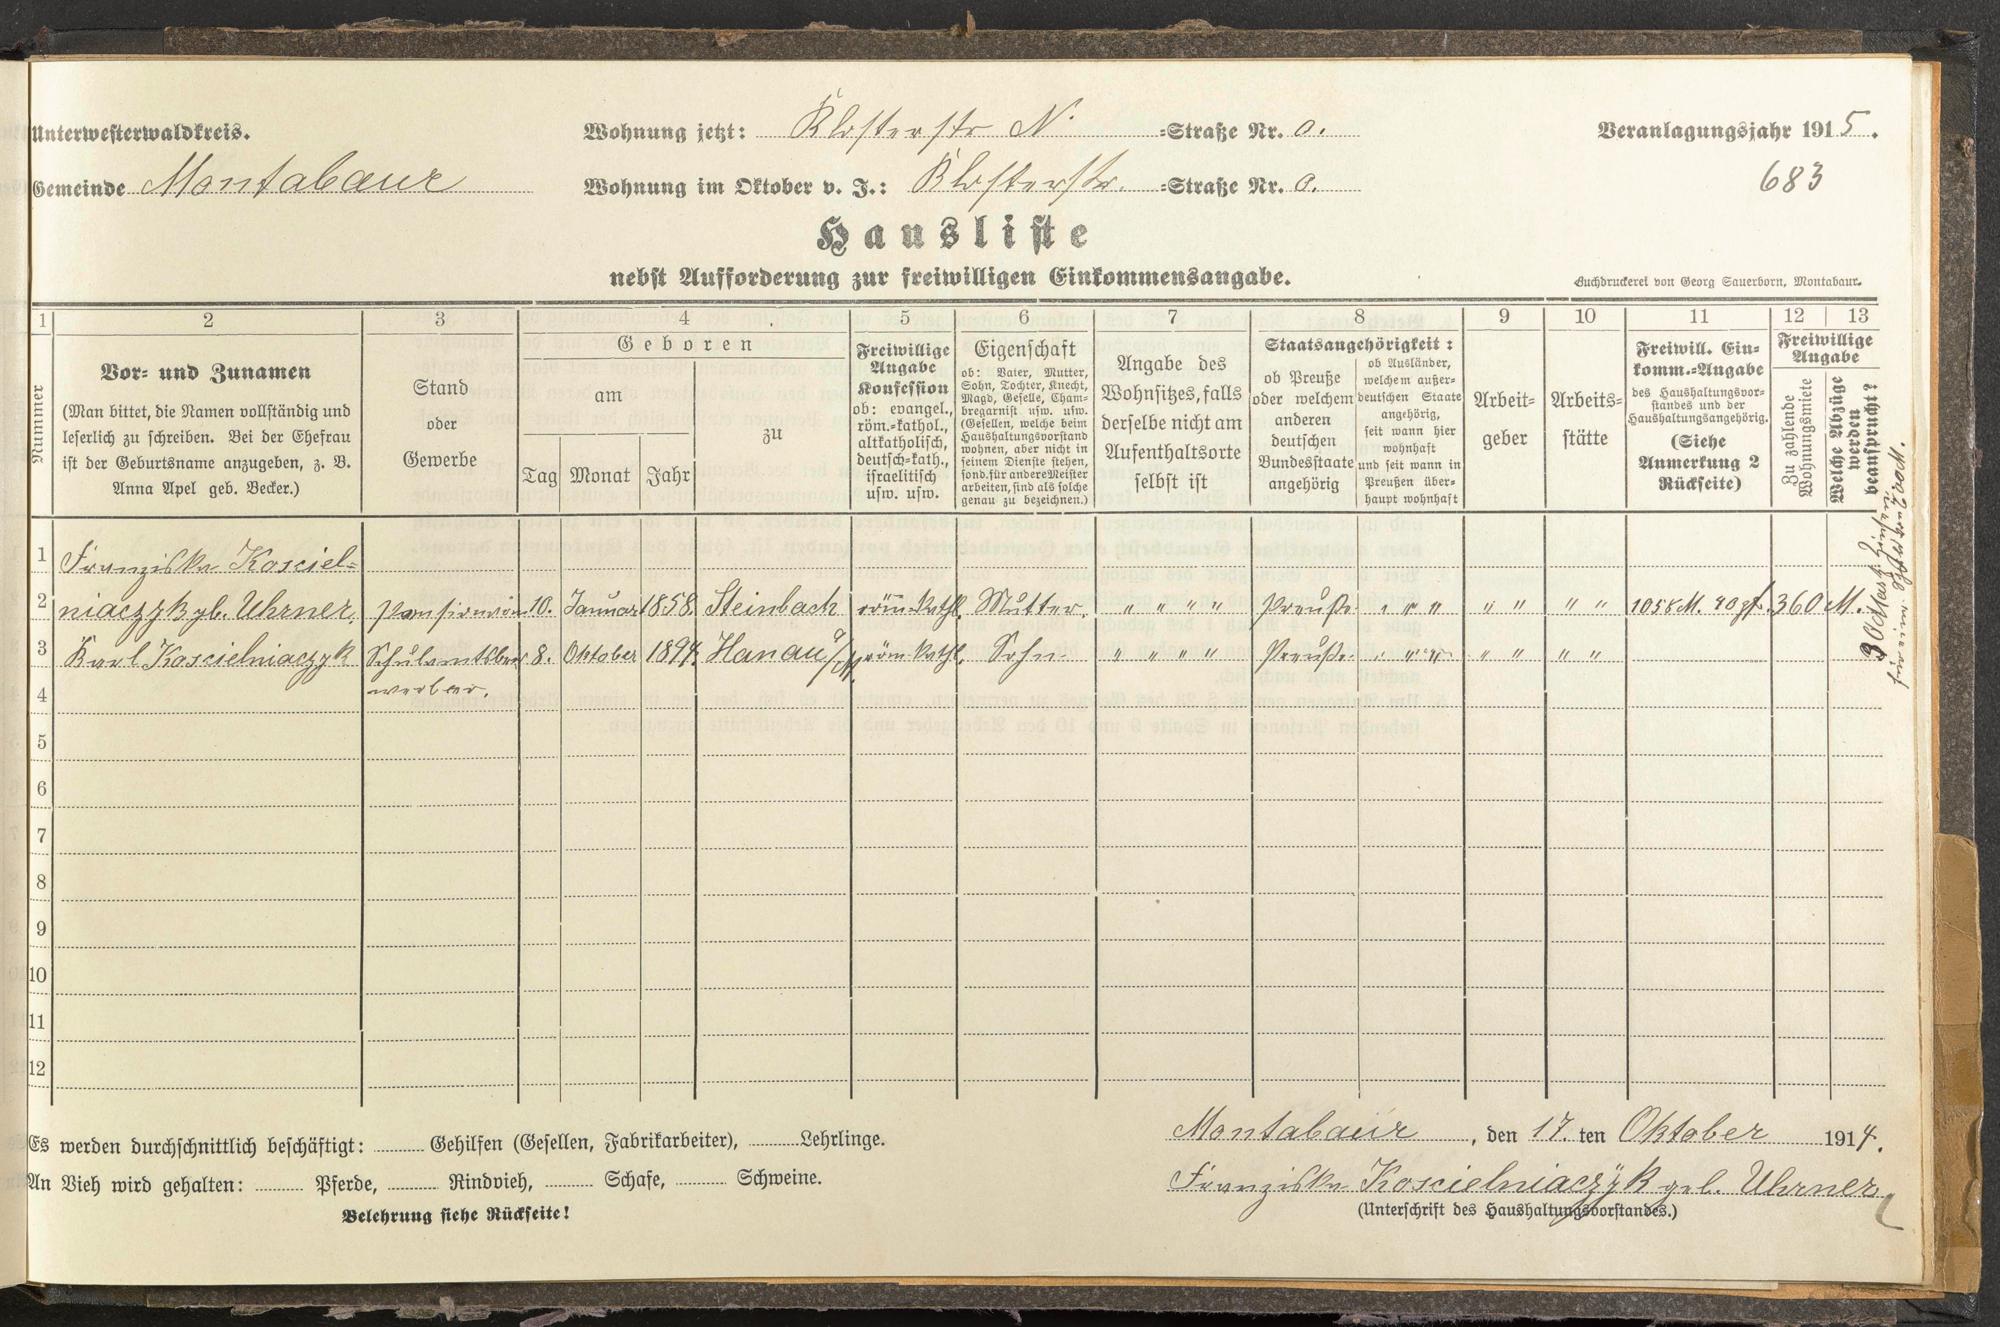 Unterwesterwaldkreis.
Wohnung jetzt: Klosterstr N. =Straße Nr. o.
Veranlagungsjahr 1915.
Gemeinde Montabaur
Wohnung im Oktober v. J.: Klosterstr. =Straße Nr. o.
683
Hausliste
nebst Aufforderung zur freiwilligen Einkommensangabe.
Buchdruckerei von Georg Sauerborn, Montabaur.
1 2 3 4 5 6 7 8 9 10 11 12 13
Nummer
Vor- und Zunamen
(Man bittet, die Namen vollständig und
leserlich zu schreiben. Bei der Ehefrau
ist der Geburtsname anzugeben, z. B.
Anna Apel geb. Becker.)
Stand
oder
Gewerbe
Geboren
am
Tag Monat Jahr
zu
Freiwillige
Angabe
Konfession
ob: evangel.,
röm.=kathol.,
altkatholisch,
deutsch=kath.,
israelitisch
usw. usw.
Eigenschaft
ob: Vater, Mutter,
Sohn, Tochter, Knecht,
Magd, Geselle, Cham-
bregarnist usw. usw.
(Gesellen, welche beim
Haushaltungsvorstand
wohnen, aber nicht in
seinem Dienste stehen,
sond. für andere Meister
arbeiten, sind als solche
genau zu bezeichnen.)
Angabe des
Wohnsitzes, falls
derselbe nicht am
Aufenthaltsorte
selbst ist
Staatsangehörigkeit:
ob Preuße
oder welchem
anderen
deutschen
Bundesstaate
angehörig
ob Ausländer,
welchem außer-
deutschen Staate
angehörig,
seit wann hier
wohnhaft
und seit wann in
Preußen über-
haupt wohnhaft
Arbeit-
geber
Arbeits-
stätte
Freiwill. Ein-
komm.=Angabe
des Haushaltungsvor-
standes und der
Haushaltungsangehörig.
(Siehe
Anmerkung 2
Rückseite)
Freiwillige
Angabe
Zu zahlende
Wohnungsmiete
Welche Abzüge
werden
beansprucht?
1 Franziska Kosciel=
2 niaczyk gb. Uhrner, Pensionärin 10. Januar 1858. Steinbach röm.-kathl. Mutter. " " " " Preuße. " " " " " " " 1058 M. 40 pf. 360 M.
3 Karl Koscielniaczyk Schulamtsbe= 8. Oktober 1894. Hanau a/M. röm-kathl. Sohn. " " " " Preuße. " " " " " " "
werber.
4
5
6
7
8
9
10
11
12
Es werden durchschnittlich beschäftigt: Gehilfen (Gesellen, Fabrikarbeiter), Lehrlinge.
An Vieh wird gehalten: Pferde, Rindvieh, Schafe, Schweine.
Belehrung siehe Rückseite!
Montabaur, den 17. ten Oktober 1914.
Franziska Koscielniaczyk geb. Uhrner
(Unterschrift des Haushaltungsvorstandes.)